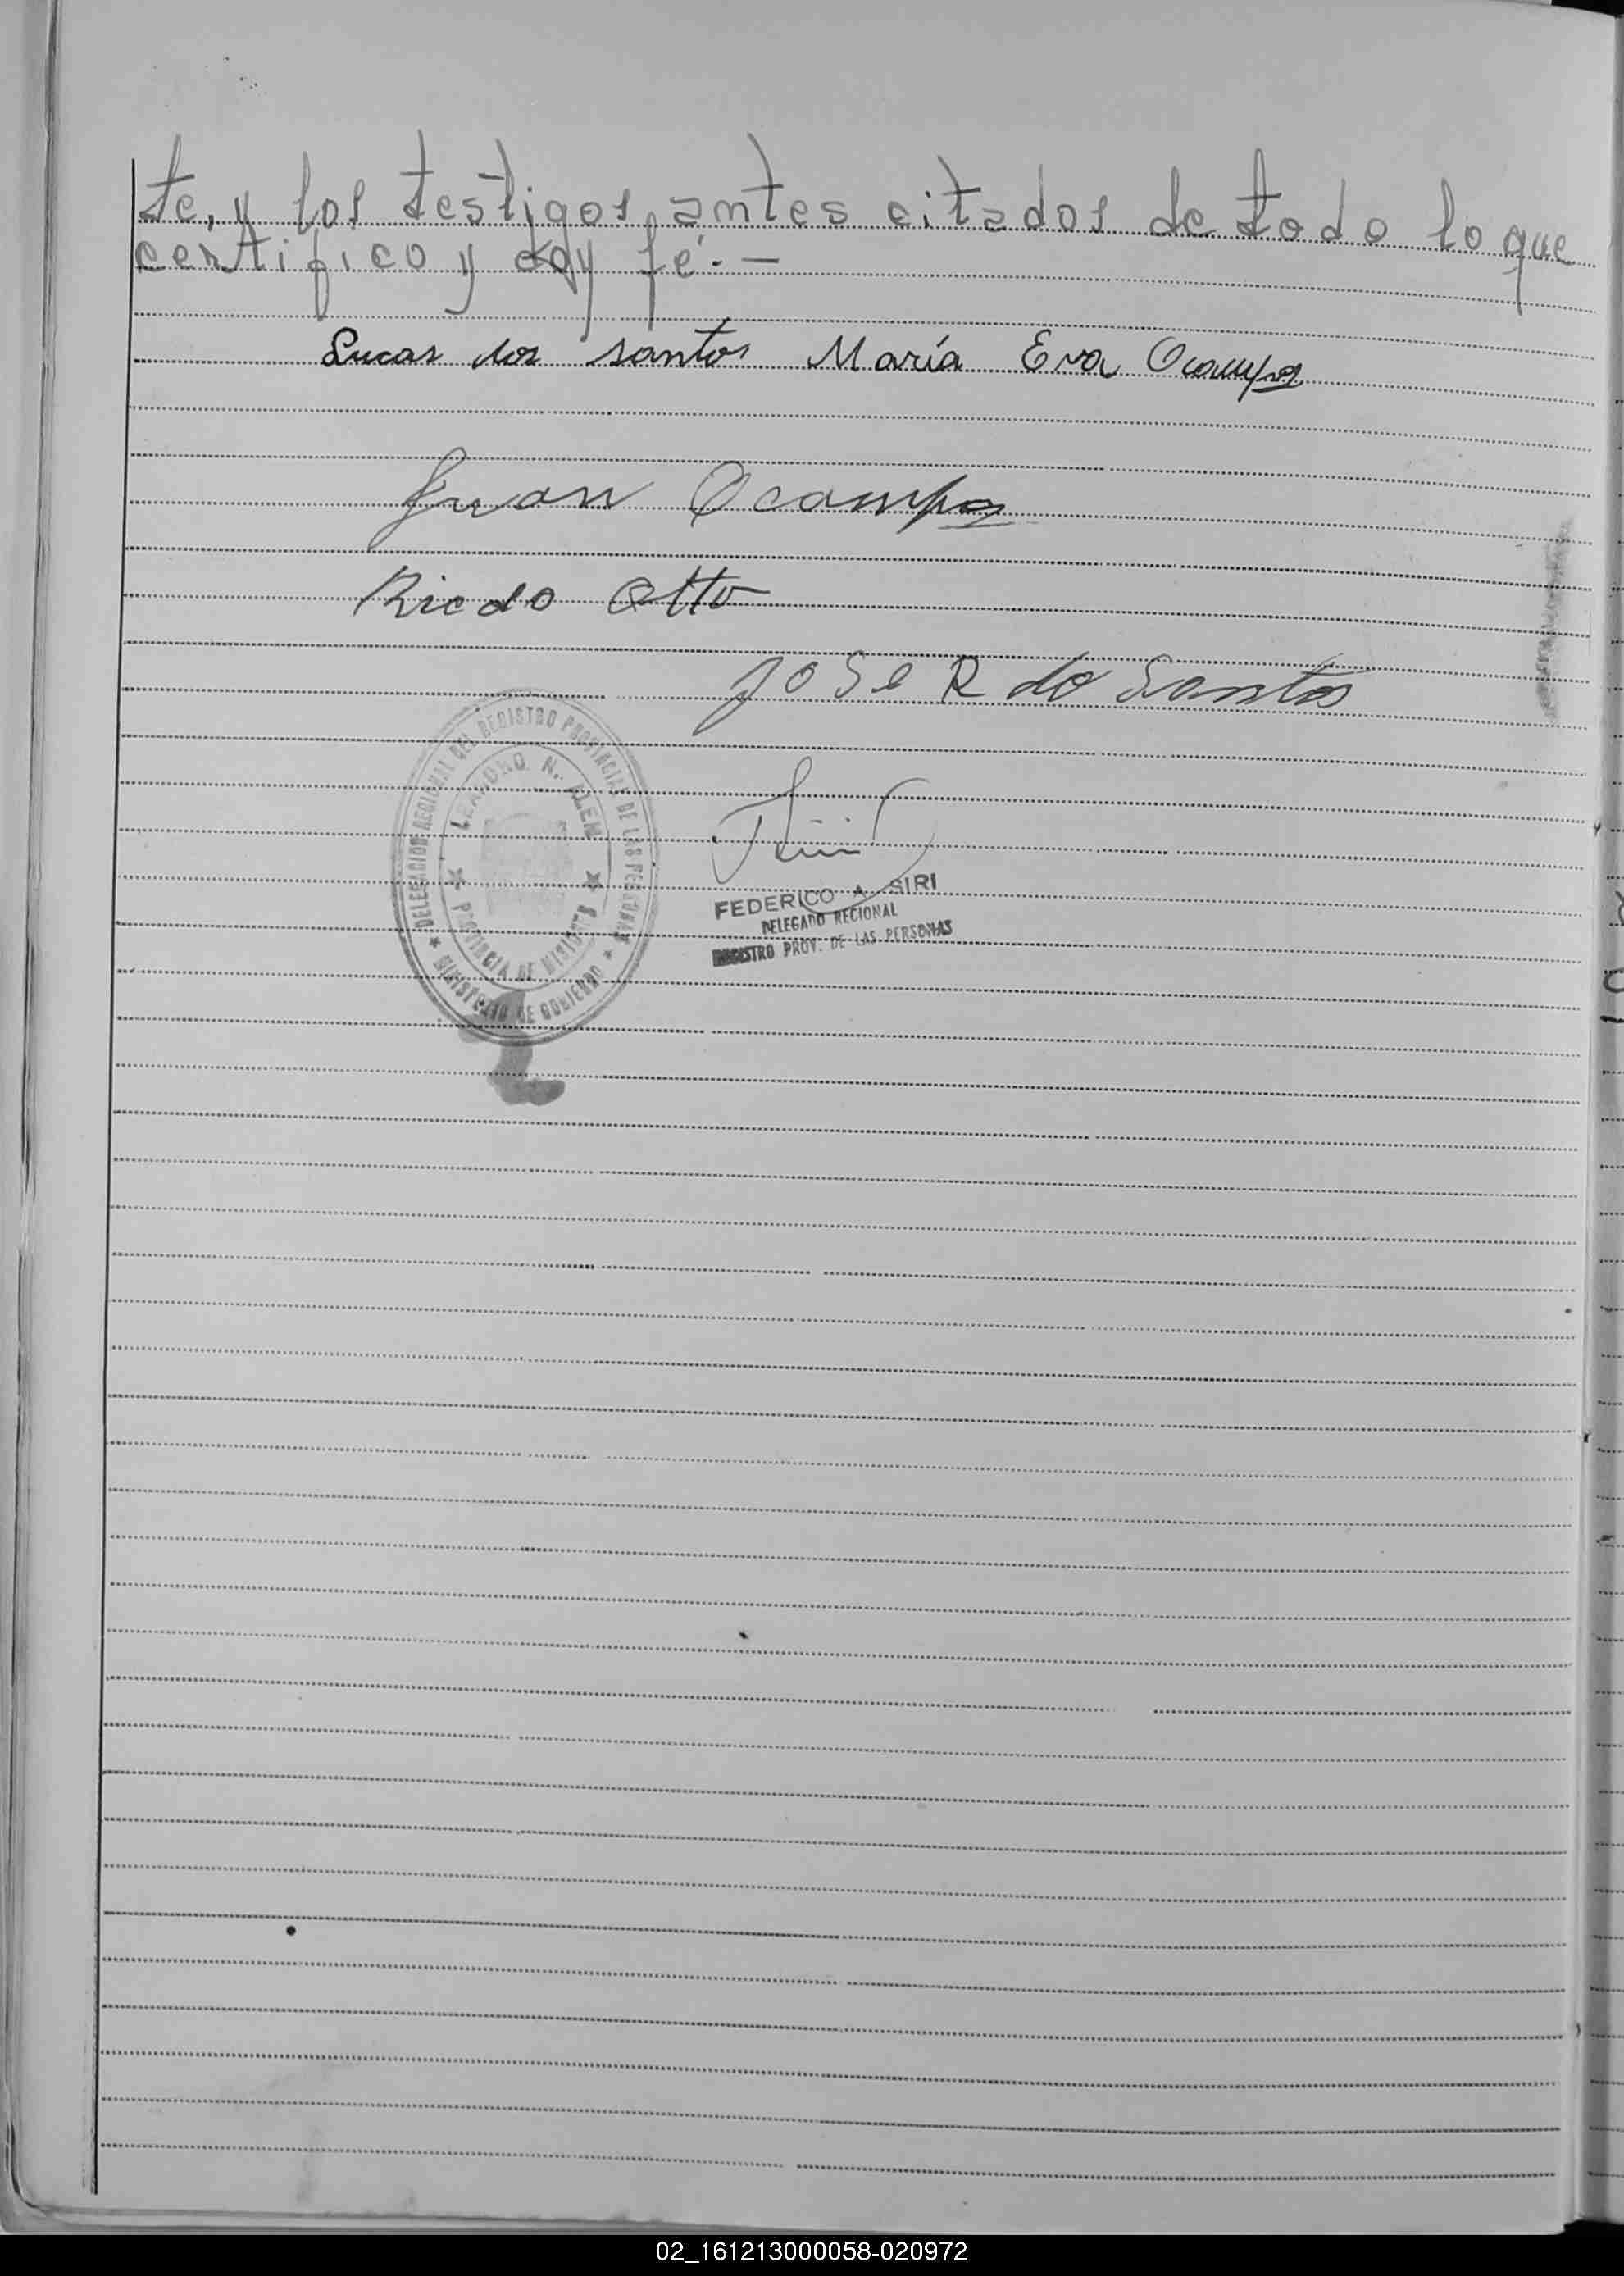 te, y los testigos antes citados de todo lo que
certifico y doy fé.-
Lucas dos santos María Eva Ocampos
Juan Ocampos
Riedo Otto
Jose R do Santos
DELEGACION REGIONAL DEL REGISTRO PROVINCIAL DE LAS PERSONAS
LEANDRO N. ALEM
PROVINCIA DE MISIONES
MINISTERIO DE GOBIERNO
FEDERICO A. SIRI
DELEGADO REGIONAL
REGISTRO PROV. DE LAS PERSONAS
02_161213000058-020972